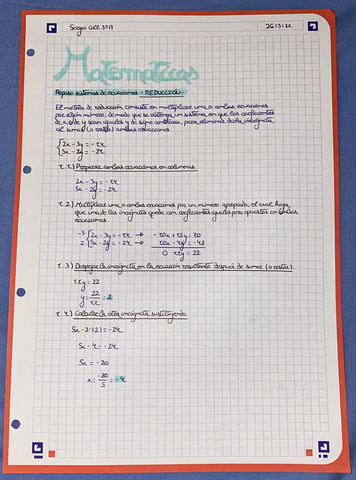 Sergio Coll 3ºB
Matemáticas
Repaso sistemas de ecuaciones - REDUCCIÓN -
El método de reducción consiste en multiplicar una o ambas ecuaciones
por algún número, de modo que se obtenga un sistema en que los coeficientes
de x o de y sean iguales y de signo cambiado, para eliminar dicha incógnita
al sumar (o restar) ambas ecuaciones.
2x - 3y = -14
5x - 2y = -24
1.1) Preparar ambas ecuaciones en columnas.
2x - 3y = -14
5x - 2y = -24
1.2) Multiplicar una o ambas ecuaciones por un número apropiado, el cual haga
que una de las incógnitas quede con coeficientes iguales pero opuestos en ambas
ecuaciones.
-5 2x - 3y = -14 → -10x + 15y = 70
2 5x - 2y = -24 → 10x - 4y = -48
0 11y = 22
1.3) Despejar la incógnita en la ecuación resultante después de sumar (o restar).
11y = 22
y = 22/11 = 2
1.4) Calcular la otra incógnita sustituyendo
5x - 2·(2) = -24
5x - 4 = -24
5x = -20
x = -20/5 = -4